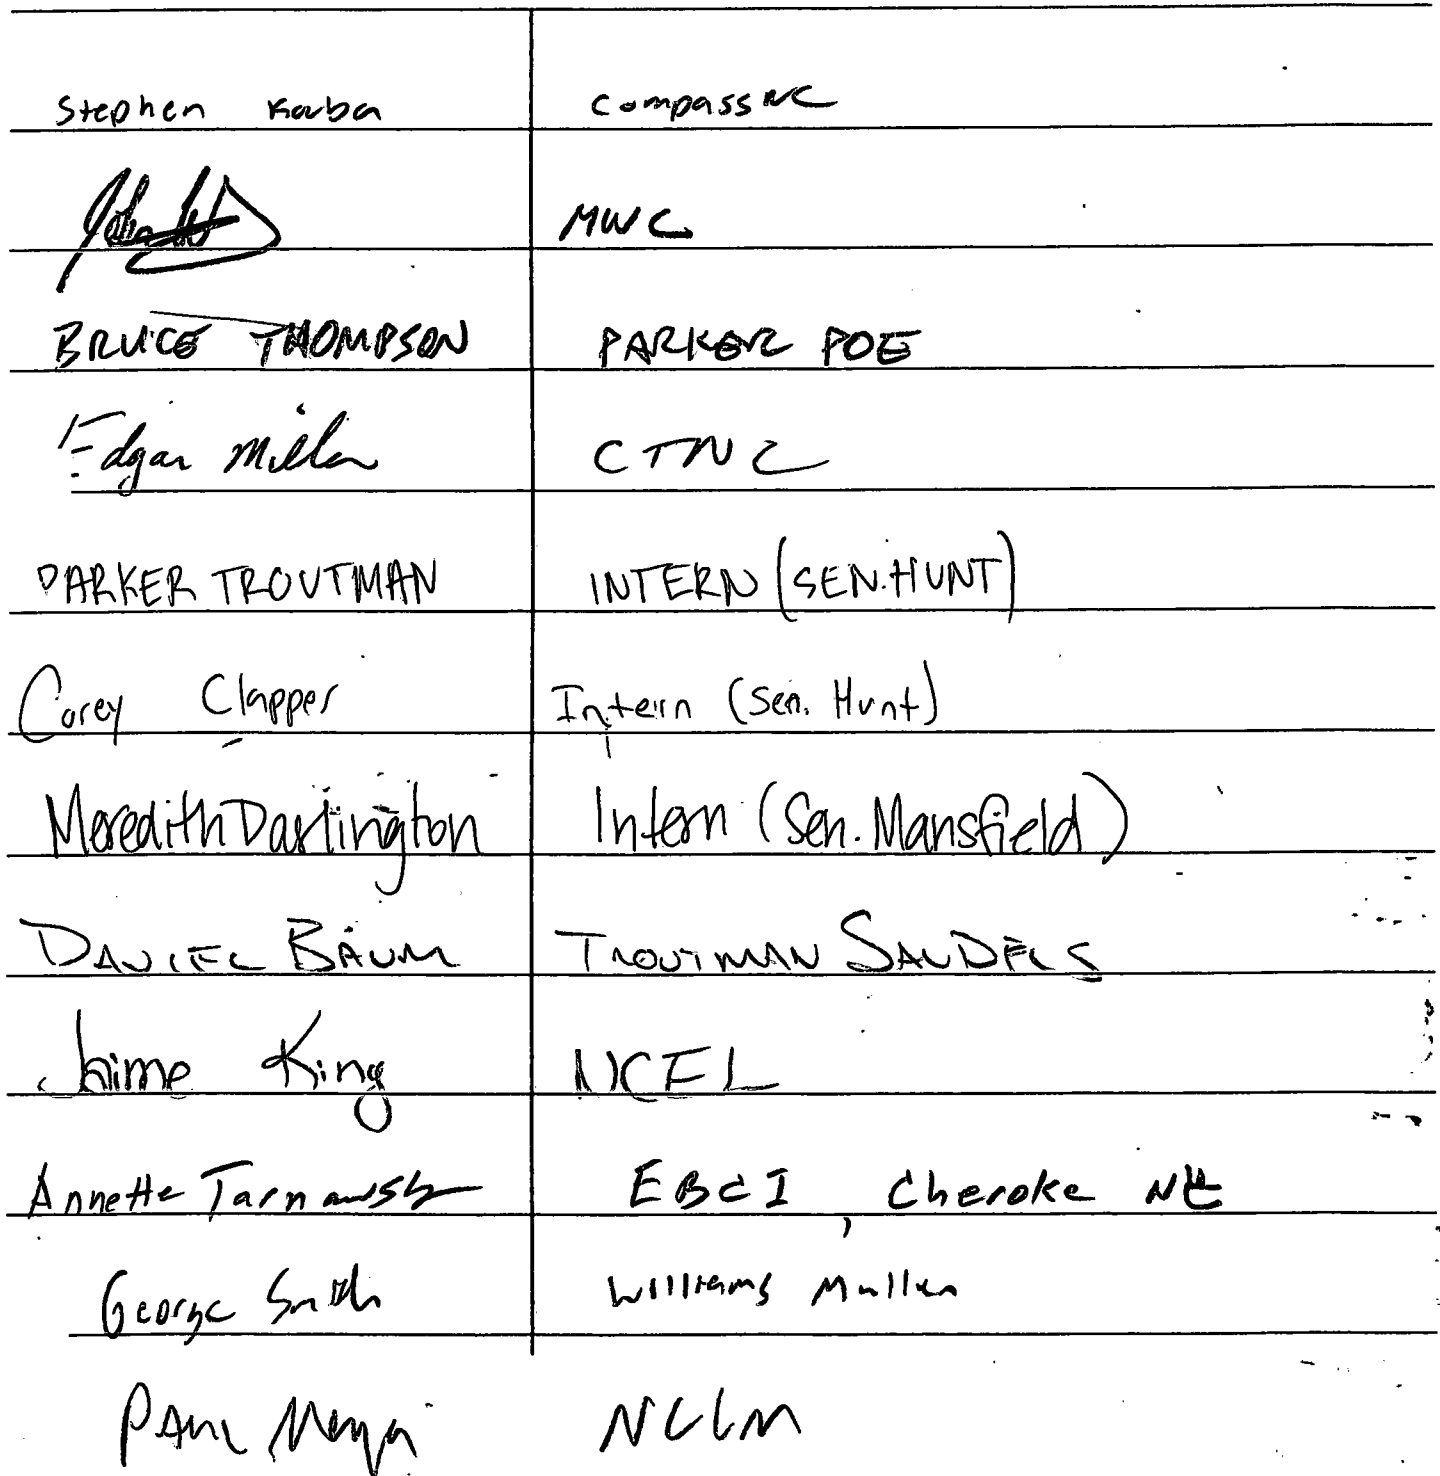 Stephen Karba CompassNC
MWC
BRUCE THOMPSON PARKER POE
Edgar Miller CTNC
PARKER TROUTMAN INTERN (SEN. HUNT)
Corey Clapper Intern (Sen. Hunt)
Meredith Darlington Intern (Sen. Mansfield)
DANIEL BAUM TROUTMAN SANDERS
Jaime King NCEL
Annette Tarnawsky EBCI, Cheroke NC
George Smith Williams Mullen
PAUL Meyer NCLM